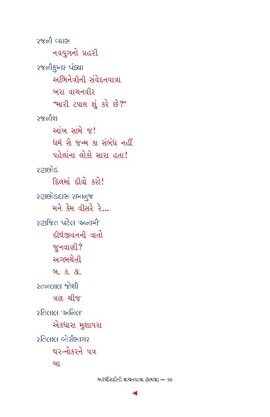 રજની વ્યાસ
નવયુગનો પ્રહરી
રજનીકુમાર પંડ્યા
અભિનેત્રીની સંવેદનયાત્રા
ખરા વાચનવીર
“મારી ટપાલ શું કરે છે?”
રજનીશ
આંખ સામે જ!
ધર્મ સે જન્મ કા સંબંધ નહીં
પહેલાંના લોકો સારા હતા!
રણછોડ
દિલમાં દીવો કરો!
રણછોડદાસ રામાનુજ
મને કેમ વીસરે રે...
રણજિત પટેલ ‘અનામી’
દીર્ઘજીવનની વાતો
જુનવાણી?
અગમચેતી
બ. ક. ઠા.
રતનલાલ જોશી
ત્રણ ચીજ
રતિલાલ ‘અનિલ’
એકધારા મુશાયરા
રતિલાલ બોરીસાગર
ઘર-નોકરને પત્ર
બા